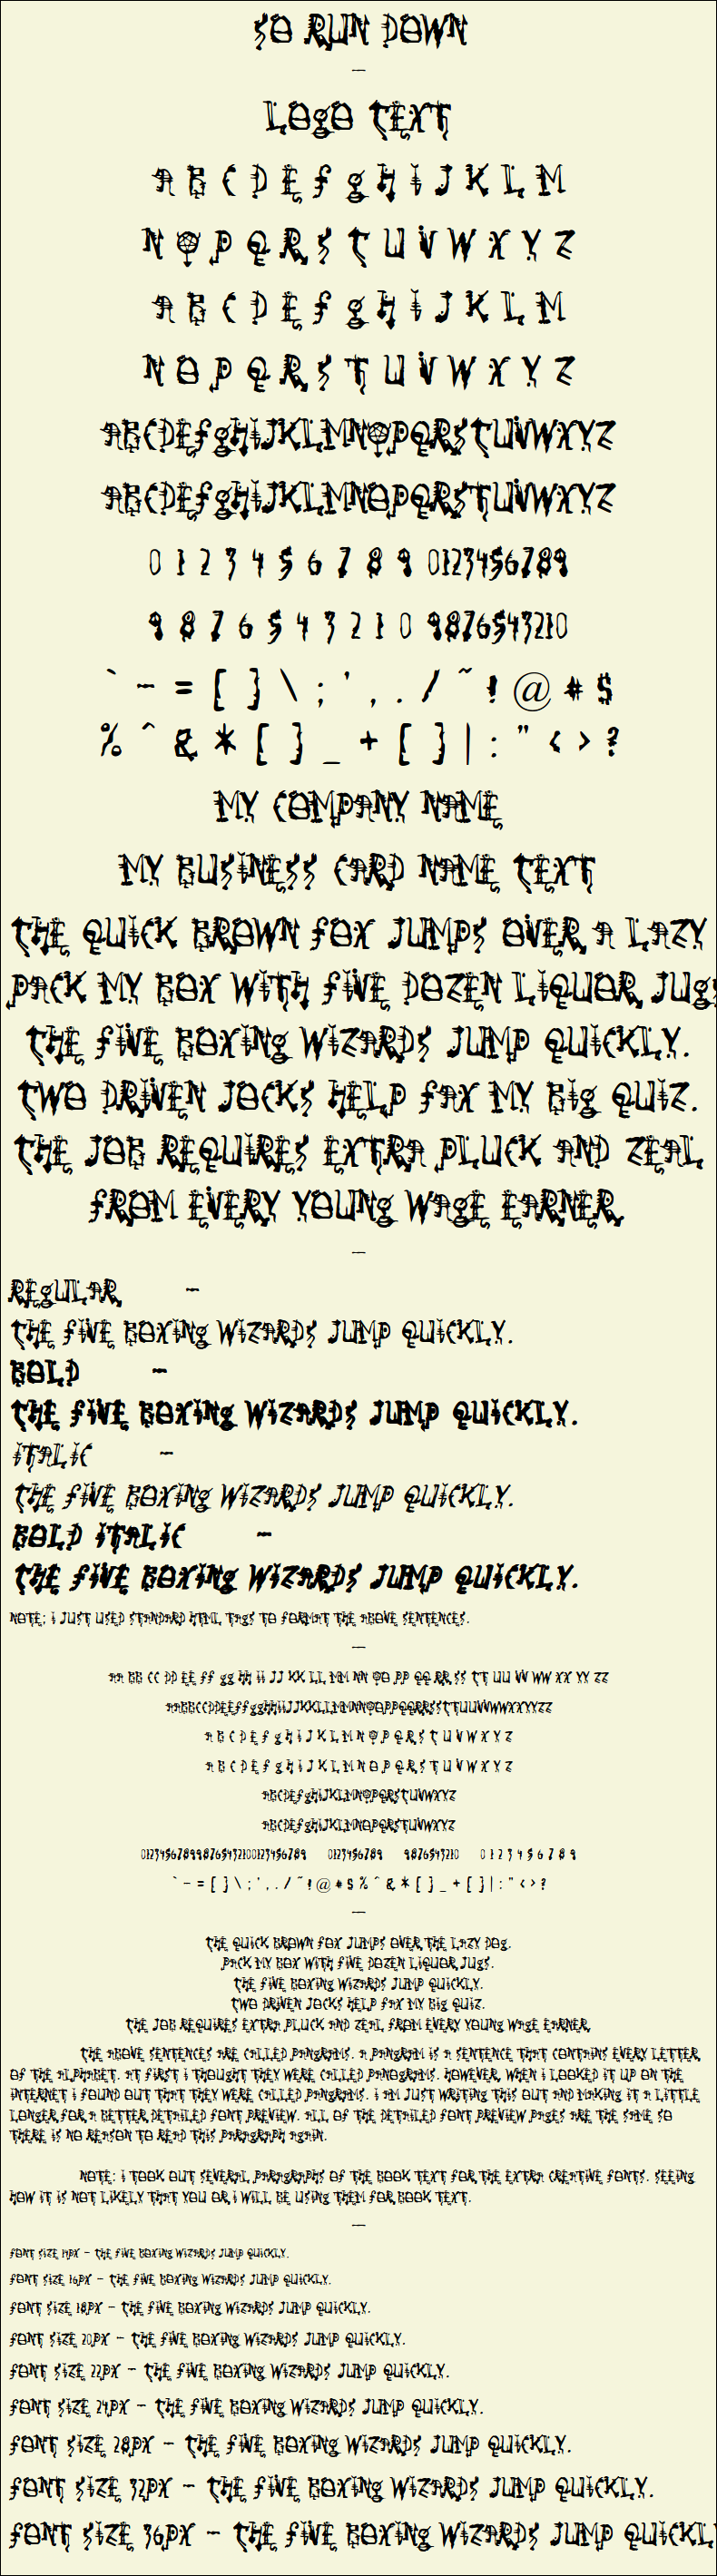 SO RUN DOWN
—
LOGO TEXT
A B C D E F G H I J K L M
N O P Q R S T U V W X Y Z
A B C D E F G H I J K L M
N O P Q R S T U V W X Y Z
ABCDEFGHIJKLMNOPQRSTUVWXYZ
ABCDEFGHIJKLMNOPQRSTUVWXYZ
0 1 2 3 4 5 6 7 8 9 0123456789
9 8 7 6 5 4 3 2 1 0 9876543210
` - = [ ] \ ; ' , . / ~ ! @ # $
% ^ & * [ ] _ + [ ] | : " < > ?
MY COMPANY NAME
MY BUSINESS CARD NAME TEXT
THE QUICK BROWN FOX JUMPS OVER A LAZY
PACK MY BOX WITH FIVE DOZEN LIQUOR JUGS
THE FIVE BOXING WIZARDS JUMP QUICKLY.
TWO DRIVEN JOCKS HELP FAX MY BIG QUIZ.
THE JOB REQUIRES EXTRA PLUCK AND ZEAL
FROM EVERY YOUNG WAGE EARNER.
—
REGULAR -
THE FIVE BOXING WIZARDS JUMP QUICKLY.
BOLD -
THE FIVE BOXING WIZARDS JUMP QUICKLY.
ITALIC -
THE FIVE BOXING WIZARDS JUMP QUICKLY.
BOLD ITALIC -
THE FIVE BOXING WIZARDS JUMP QUICKLY.
NOTE: I JUST USED STANDARD HTML TAGS TO FORMAT THE ABOVE SENTENCES.
—
AA BB CC DD EE FF GG HH II JJ KK LL MM NN OO PP QQ RR SS TT UU VV WW XX YY ZZ
AABBCCDDEEFFGGHHIIJJKKLLMMNNOOPPQQRRSSTTUUVVWWXXYYZZ
A B C D E F G H I J K L M N O P Q R S T U V W X Y Z
A B C D E F G H I J K L M N O P Q R S T U V W X Y Z
ABCDEFGHIJKLMNOPQRSTUVWXYZ
ABCDEFGHIJKLMNOPQRSTUVWXYZ
012345678998765432100123456789 0123456789 9876543210 0 1 2 3 4 5 6 7 8 9
` - = [ ] \ ; ' , . / ~ ! @ # $ % ^ & * [ ] _ + [ ] | : " < > ?
—
THE QUICK BROWN FOX JUMPS OVER THE LAZY DOG.
PACK MY BOX WITH FIVE DOZEN LIQUOR JUGS.
THE FIVE BOXING WIZARDS JUMP QUICKLY.
TWO DRIVEN JOCKS HELP FAX MY BIG QUIZ.
THE JOB REQUIRES EXTRA PLUCK AND ZEAL FROM EVERY YOUNG WAGE EARNER.
THE ABOVE SENTENCES ARE CALLED PANGRAMS. A PANGRAM IS A SENTENCE THAT CONTAINS EVERY LETTER
OF THE ALPHABET. AT FIRST I THOUGHT THEY WERE CALLED PANOGRAMS. HOWEVER, WHEN I LOOKED IT UP ON THE
INTERNET I FOUND OUT THAT THEY WERE CALLED PANGRAMS. I AM JUST WRITING THIS OUT AND MAKING IT A LITTLE
LONGER FOR A BETTER DETAILED FONT PREVIEW. ALL OF THE DETAILED FONT PREVIEW PAGES ARE THE SAME SO
THERE IS NO REASON TO READ THIS PARAGRAPH AGAIN.
NOTE: I TOOK OUT SEVERAL PARAGRAPHS OF THE BOOK TEXT FOR THE EXTRA CREATIVE FONTS. SEEING
HOW IT IS NOT LIKELY THAT YOU OR I WILL BE USING THEM FOR BOOK TEXT.
—
FONT SIZE 14PX - THE FIVE BOXING WIZARDS JUMP QUICKLY.
FONT SIZE 16PX - THE FIVE BOXING WIZARDS JUMP QUICKLY.
FONT SIZE 18PX - THE FIVE BOXING WIZARDS JUMP QUICKLY.
FONT SIZE 20PX - THE FIVE BOXING WIZARDS JUMP QUICKLY.
FONT SIZE 22PX - THE FIVE BOXING WIZARDS JUMP QUICKLY.
FONT SIZE 24PX - THE FIVE BOXING WIZARDS JUMP QUICKLY.
FONT SIZE 28PX - THE FIVE BOXING WIZARDS JUMP QUICKLY.
FONT SIZE 32PX - THE FIVE BOXING WIZARDS JUMP QUICKLY.
FONT SIZE 36PX - THE FIVE BOXING WIZARDS JUMP QUICKLY